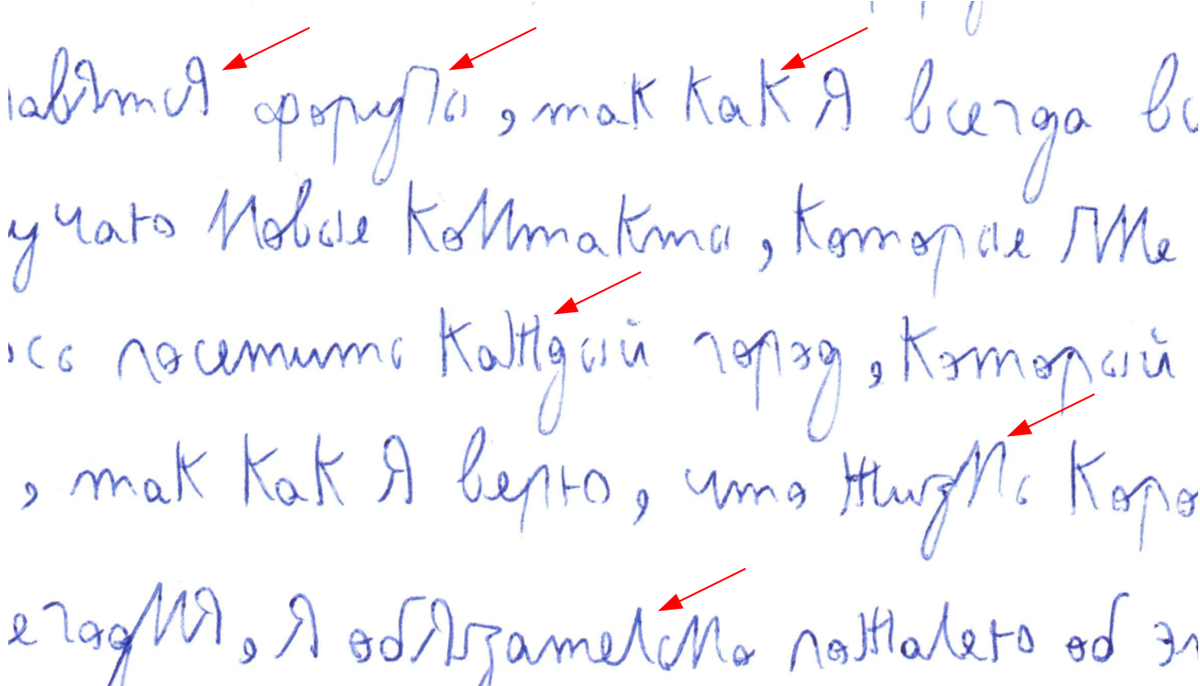 авятся форумы, так как я всегда вс
учаю новые контакты, которые мне
сь посетить каждый город, который
, так как я верю, что жизнь коро
егодня, я обязательно пожалею об э